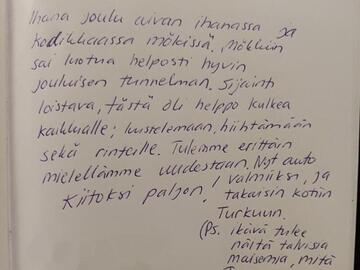 Ihana joulu aivan ihanassa ja
kodikkaassa mökissä. Mökkiin
sai luotua helposti hyvin
jouluisen tunnelman. Sijainti
loistava, tästä oli helppo kulkea
kaikkialle; luistelemaan, hiihtämään
sekä rinteille. Tulemme erittäin
mielellämme uudestaan. Nyt auto
Kiitoksi paljon! valmiiksi, ja
takaisin kotiin
Turkuun.
(Ps. ikävä tulee
näitä talvisia
maisemia, mitä